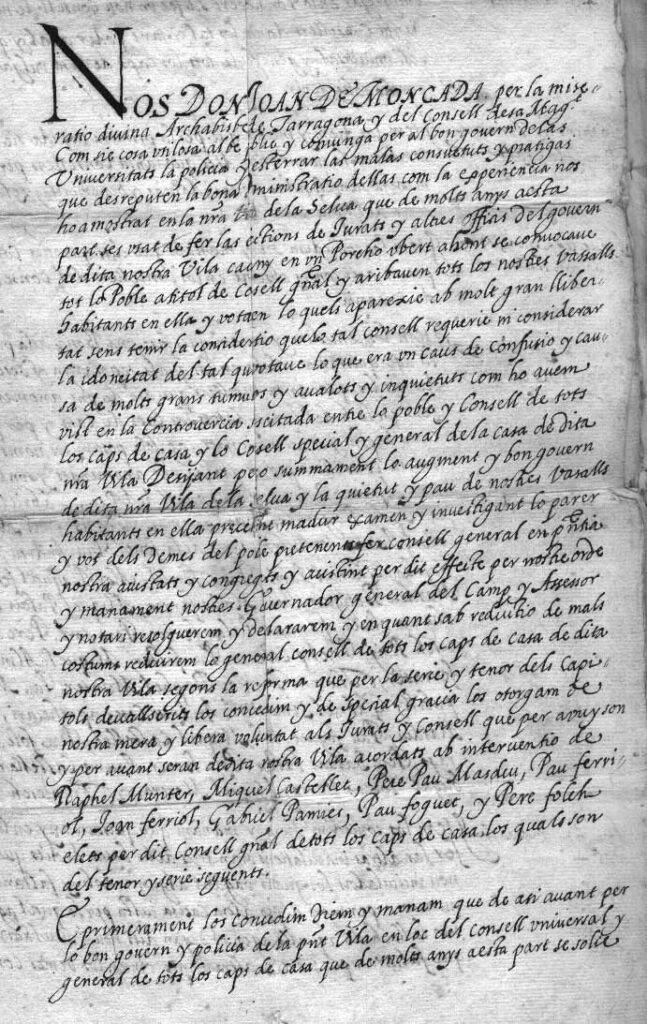 NOS DON JOAN DE MONCADA, per la mise-
ratio divina Archabisbe de Tarragona y del Consell de sa Mag.
Com sie cosa utilosa al be y convinga per al bon govern de las
Universitats la policia y desterrar las malas consuetuts y pratigas
que desreputen la bona ministratio dellas com la experiencia nos
ho a mostrat en la nra de la Selva que de molts anys a esta
part ses usat de fer las ections de Jurats y altres officis del govern
de dita nostra Vila cad'any en un Porcho ubert ahont se convocave
tot lo Poble a titol de Cosell gnal y aribaven tots los nostres vassalls
habitants en ella y votaen lo quels aparexie ab molt gran lliber-
tat sens tenir la consideratio que lo tal consell requerie ni considerar
la idoneitat del tal qui votave lo que era un caus de confusio y cau-
sa de molts grans tumuos y avalots y inquietuts com ho avem
vist en la Controvercia sscitada entre lo poble y Consell de tots
los caps de casa y lo Cosell special y general de la casa de dita
nra Vila Desijant pero summament lo augment y bon govern
de dita nra Vila de la selva y la quietut y pau de nostres vasalls
habitants en ella precehint madur examen y investigant lo parer
y vot dels demes del poble pretenent fer consell general en pntia
nostra aiustats y congregats y assistint per dit effecte per nostre orde
y manament nostres Guvernador general del Camp y Assessor
y notari resolguerem y declararem y en quant sab reductio de mals
costums reduirem lo general consell de tots los caps de casa de dita
nostra Vila segons la refrma que per la serie y tenor dels Capi-
tols devallscrits los concedim y de special gracia los otorgam de
nostra mera y libera voluntat als Jurats y Consell que per avuy son
y per avant seran de dita nostra Vila acordats ab interventio de
Raphel Munter, Miquel Castellet, Pere Pau Masdeu, Pau ferri-
ol, Joan ferriol, Gabriel Pamies, Pau foguet, y Pere folch
elets per dit Consell gnal de tots los caps de casa, los quals son
del tenor y serie seguents.
E primerament los concedim diem y manam que de assi avant per
lo bon govern y policia de la pnt Vila en loc del consell universal y
general de tots los caps de casa que de molts anys a esta part se solie